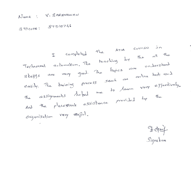 Name :
I completed the course in
Technical automation. The teaching by the all the
staffs are very good. The topics are understood
easily. The training process such as online test and
the assignments helped me to learn very effectively.
And the placement assistance provided by the
organisation very useful.
Signature